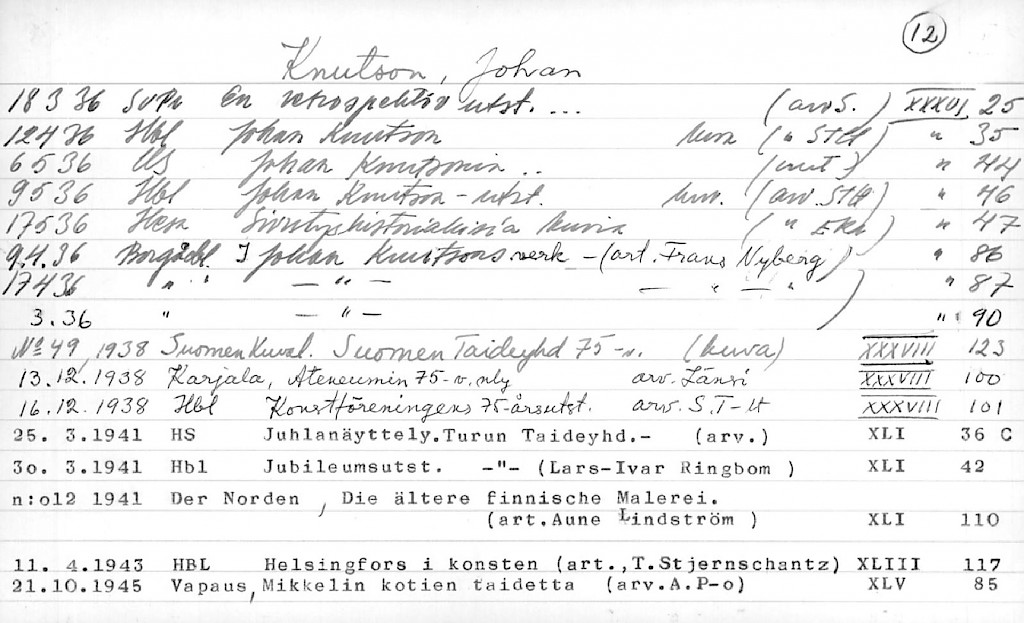 12
Knutson, Johan
18 3 36 SvPr En retrospektiv utst. ... (arv S. ) XXXVI 25
12 4 36 Hbl Johan Knutson kuva (" STH ) " 35
6 5 36 US Johan Knutsonin .. (nimit) " 44
9 5 36 Hbl Johan Knutson - utst. kuv. (arv. STH ) " 46
17 5 36 Sivistyshistoriallisia kuvia ( " EKi ) " 47
9.4.36 Borgåbl. I Johan Knutsons verk - (art. Frans Nyberg ) " 86
17 4 36 " " — " — — " — " " 87
3.36 " — " — ) " 90
No 49, 1938 Suomen Kuval. Suomen Taideyhd 75-v. (kuva) XXXVIII 123
13.12.1938 Karjala, Ateneumin 75-v. nly arv. Länsi XXXVIII 100
16.12.1938 Hbl Konstföreningens 75-årsutst. arv. S.T-lt XXXVIII 101
25. 3.1941 HS Juhlanäyttely.Turun Taideyhd.- (arv.) XLI 36 C
3o. 3.1941 Hbl Jubileumsutst. -"- (Lars-Ivar Ringbom ) XLI 42
n:o12 1941 Der Norden , Die ältere finnische Malerei.
(art.Aune Lindström ) XLI 110
11. 4.1943 HBL Helsingfors i konsten (art.,T.Stjernschantz) XLIII 117
21.10.1945 Vapaus, Mikkelin kotien taidetta (arv.A.P-o) XLV 85